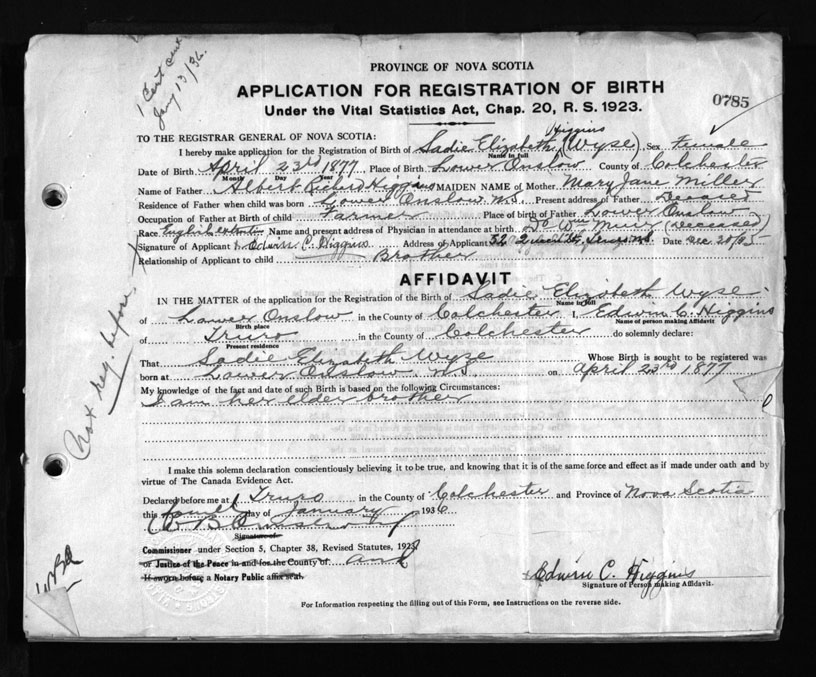 1 Cert sent
Jany 13/36.
PROVINCE OF NOVA SCOTIA
APPLICATION FOR REGISTRATION OF BIRTH
Under the Vital Statistics Act, Chap. 20, R. S. 1923.
0785
TO THE REGISTRAR GENERAL OF NOVA SCOTIA:
Higgins
I hereby make application for the Registration of Birth of Sadie Elizabeth (Wyse) Sex Female
Name in full
Date of Birth April 23rd 1877, Place of Birth Lower Onslow County of Colchester
Month Day Year
Name of Father Albert Richard Higgins MAIDEN NAME of Mother Mary Jane Miller
Residence of Father when child was born Lower Onslow N.S. Present address of Father
Occupation of Father at Birth of child Farmer Place of birth of Father Lower Onslow
Race English Name and present address of Physician in attendance at birth Dr Wm Muir (Deceased)
Signature of Applicant Edwin C. Higgins Address of Applicant 32 Queen St, Truro N.S. Date Dec. 20/35
Relationship of Applicant to child Brother
AFFIDAVIT
IN THE MATTER of the application for the Registration of the Birth of Sadie Elizabeth Wyse
Name in full
of Lower Onslow in the County of Colchester I, Edwin C. Higgins
Birth place Name of person making Affidavit
of Truro in the County of Colchester do solemnly declare:
Present residence
That Sadie Elizabeth Wyse Whose Birth is sought to be registered was
born at Lower Onslow N.S. on April 23rd 1877
My knowledge of the fact and date of such Birth is based on the following Circumstances:
I am her elder brother
I make this solemn declaration conscientiously believing it to be true, and knowing that it is of the same force and effect as if made under oath and by
virtue of The Canada Evidence Act.
Declared before me at Truro in the County of Colchester and Province of Nova Scotia
this day of January 1936
Signature of
Commissioner under Section 5, Chapter 38, Revised Statutes, 1923
or Justice of the Peace in and for the County of and
If sworn before a Notary Public affix seal.
Edwin C. Higgins
Signature of Person making Affidavit.
For Information respecting the filling out of this Form, see Instructions on the reverse side.
Not reg. before.